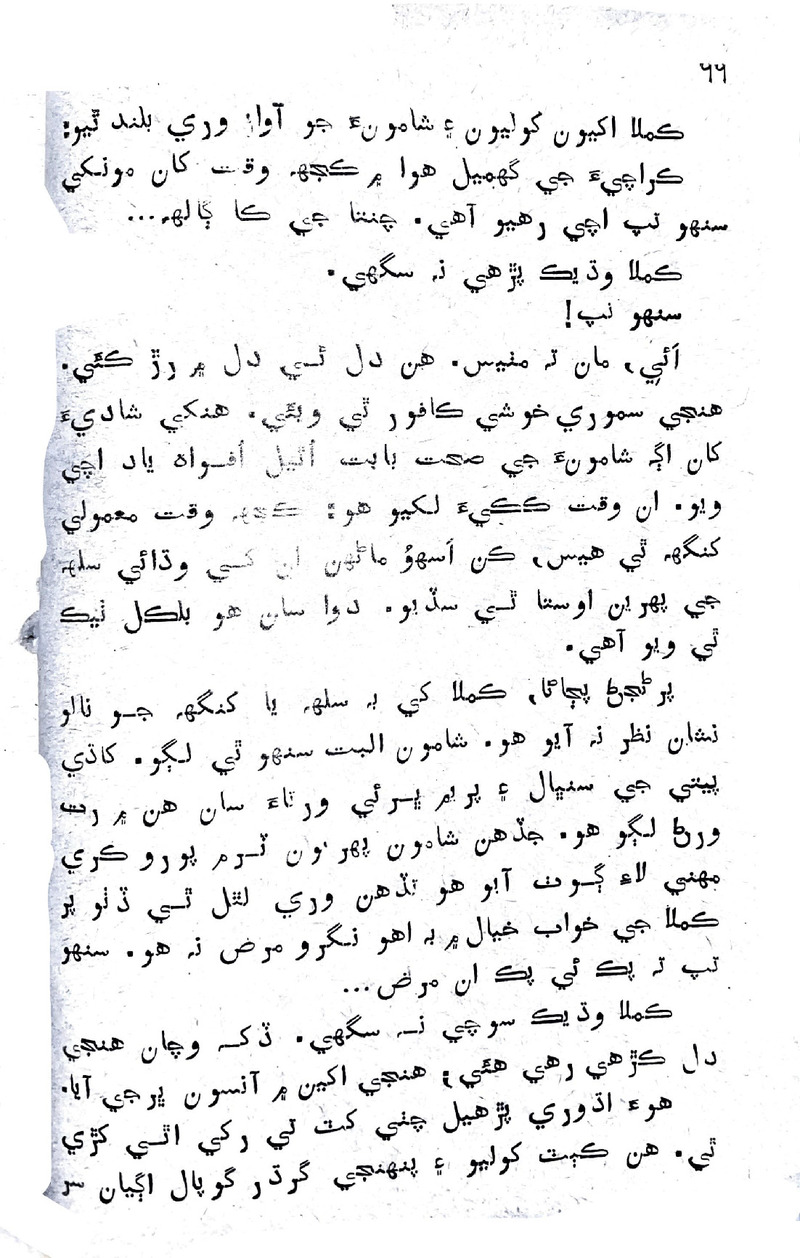 ٦٦
ڪملا اکيون کوليون ۽ شامونءَ جو آواز وري بلند ٿيو:
ڪراچيءَ جي گهميل هوا ۾ ڪجهہ وقت کان مونکي
سنهو تپ اچي رهيو آهي. چنتا جي ڪا ڳالهہ...
ڪملا وڌيڪ پڙهي نہ سگهي.
سنهو تپ!
اَئي، مان تہ مئيس. هن دل ئي دل ۾ رڙ ڪئي.
هنجي سموري خوشي ڪافور ٿي ويئي. هنکي شاديءَ
کان اڳ شامونءَ جي صحت بابت اُٿيل اَفواهہ ياد اچي
ويو. ان وقت ڪڪيءَ لکيو هو: ڪجهہ وقت معمولي
کنگهہ ٿي هيس، ڪن اَسهوُ ماڻهن ان کي وڌائي سلهہ
جي پهرين اوستا ٿي سڏيو. دوا سان هو بلڪل ٺيڪ
ٿي ويو آهي.
پرڻجڻ پڄاڻا، ڪملا کي بہ سلهہ يا کنگهہ جو نالو
نشان نظر نہ آيو هو. شامون البت سنهو ٿي لڳو. کاڌي
پيتي جي سنڀال ۽ پريم ڀرئي ورتاءَ سان هن ۾ رت
ورڻ لڳو هو. جڏهن شامون پهريون ٽرم پورو ڪري
مهني لاءِ ڳوٺ آيو هو تڏهن وري لٿل ٿي ڏٺو پر
ڪملا جي خواب خيال ۾ بہ اهو نگرو مرض نہ هو. سنهو
تپ تہ پڪ ئي پڪ ان مرض...
ڪملا وڌيڪ سوچي نہ سگهي. ڏک وچان هنجي
دل ڪڙهي رهي هئي؛ هنجي اکين ۾ آنسون ڀرجي آيا.
هوءَ اڌوري پڙهيل چٺي کٽ تي رکي اٿي کڙي
ٿي. هن ڪٻٽ کوليو ۽ پنهنجي گرڌر گوپال اڳيان سر